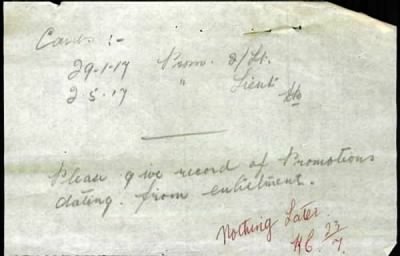 Cards :-
29-1-17 Prom. 2/Lt.
2 5.17 " Lieut
Please give record of Promotions
dating from enlistment.
Nothing Later.
HC. 23/7.